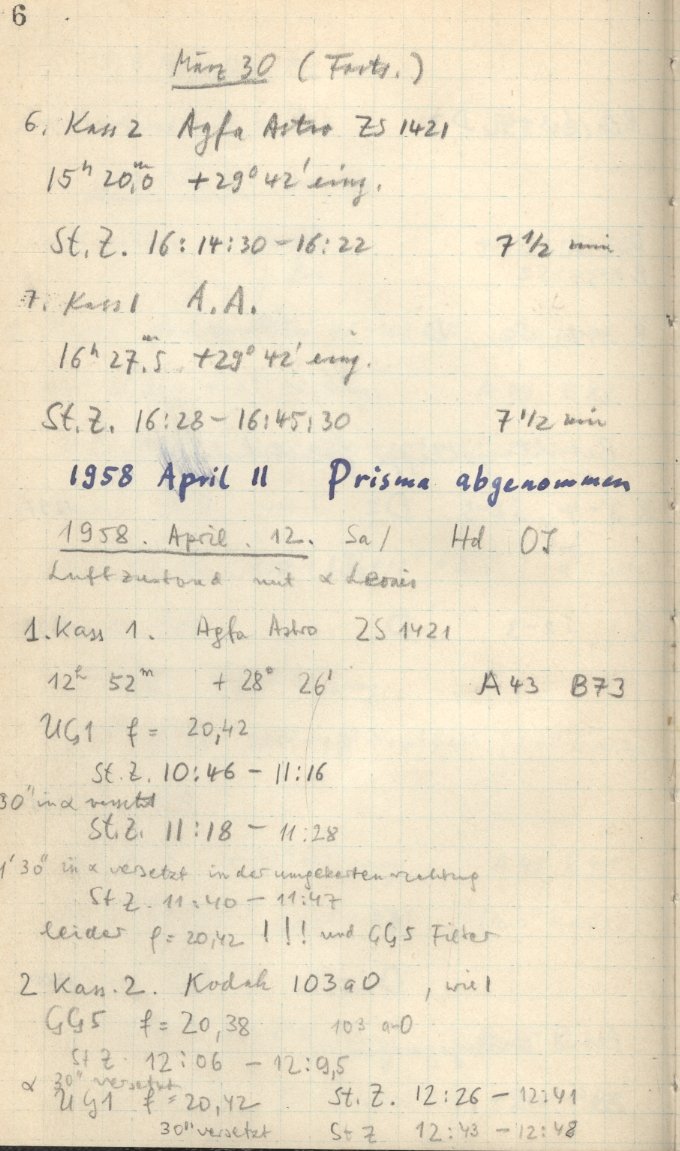 6
März 30 (Forts.)
6. Kass 2 Agfa Astro ZS 1421
15ʰ 20,ᵐ0 +29° 42' eing.
St. Z. 16:14:30 – 16:22 7 1/2 min
7. Kass 1 A.A.
16ʰ 27,ᵐ5 +29° 42' eing.
St. Z. 16:28 – 16:45:30 7 1/2 min
1958 April 11 Prisma abgenommen
1958. April. 12. Sa/ Hd OJ
Luftzustand mit α Leonis
1. Kass 1. Agfa Astro ZS 1421
12ʰ 52ᵐ +28° 26' A43 B73
UG1 f = 20,42
St. Z. 10:46 – 11:16
30" in α versetzt
St. Z. 11:18 – 11:28
1' 30" in α versetzt in der umgekerten richtung
St Z. 11:40 – 11:47
leider f = 20,42 !!! und GG5 Filter
2 Kass. 2. Kodak 103aO , wie 1
GG5 f = 20,38 103 a-O
St Z 12:06 – 12:9,5
α 30" versetzt
UG1 f = 20,42 St. Z. 12:26 – 12:41
30" versetzt St Z 12:43 – 12:48